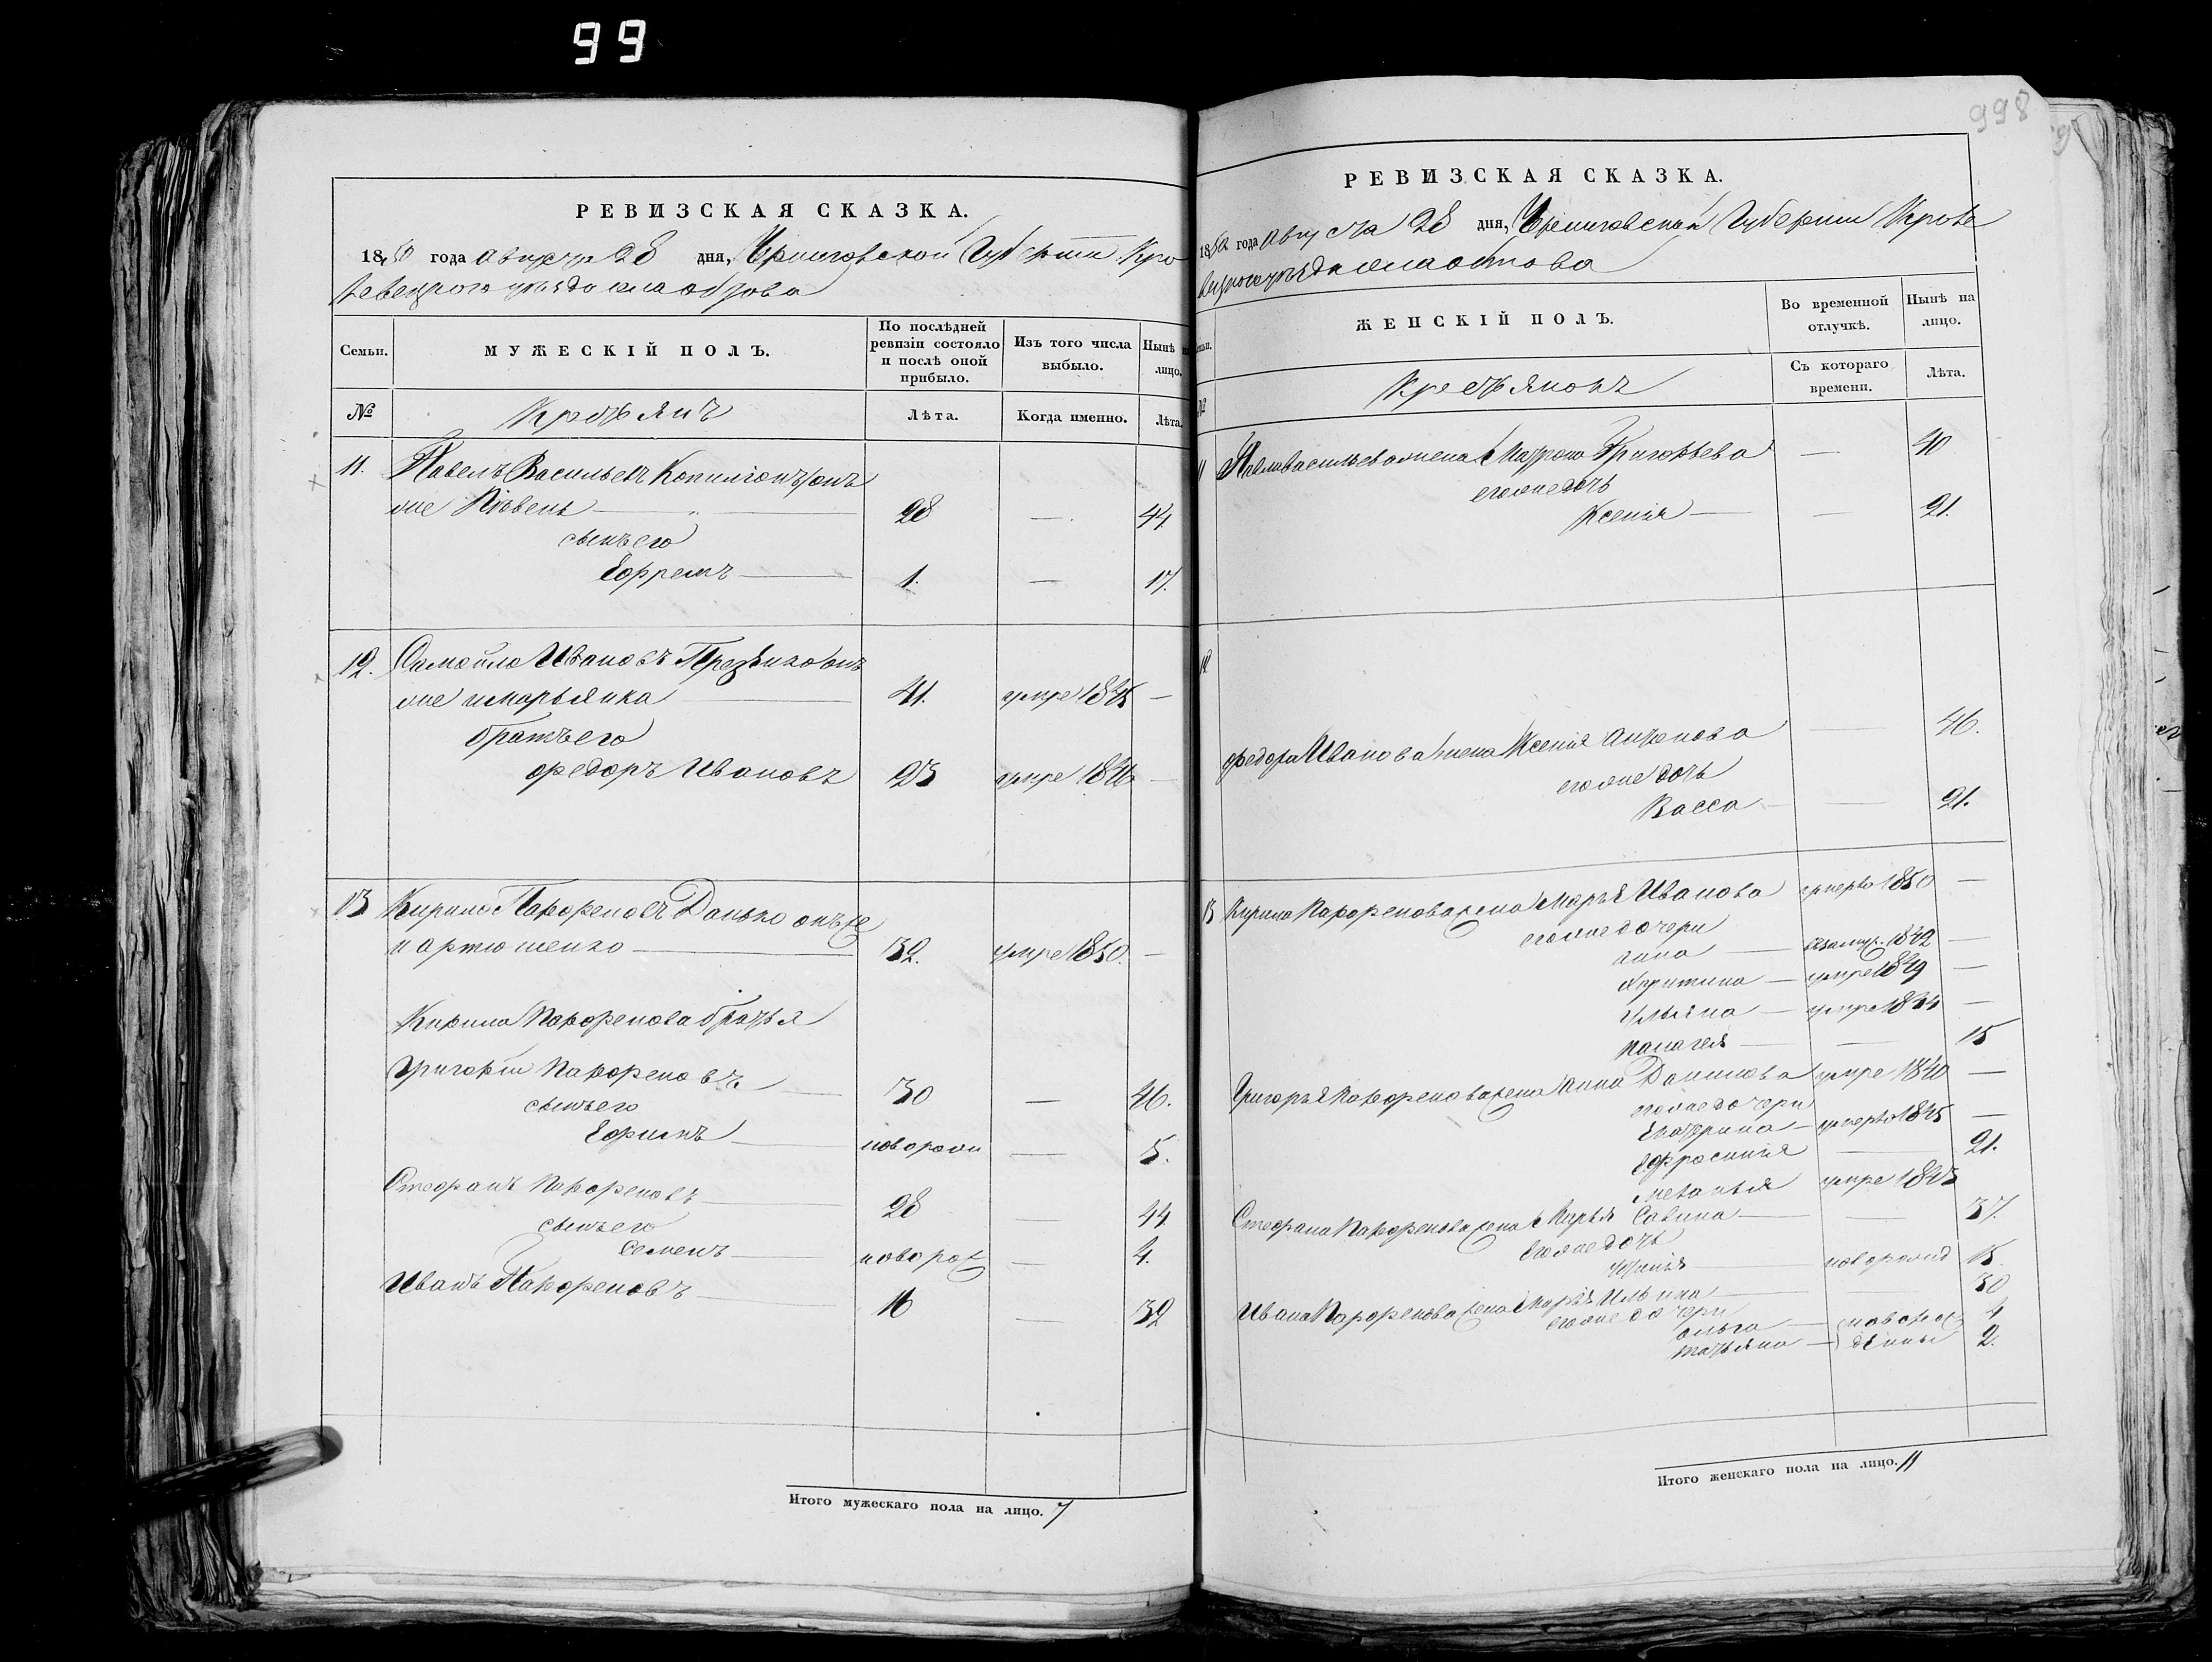 99
998
РЕВИЗСКАЯ СКАЗКА.
1850 года августа 28 дня, Черниговской Губернии Кро
левецкого уезда села
Семьи.
МУЖЕСКІЙ ПОЛЪ.
По послѣдней ревизіи состояло и послѣ оной прибыло.
Изъ того числа выбыло.
Нынѣ на лицо.
№
Крестьянъ
Лѣта.
Когда именно.
Лѣта.
11. Павелъ Васильевъ онъ
же 28 — 44
сынъ его
Ефремъ — 1. — 17.
12. Самойло Ивановъ онъ
же 41. умре 1845 —
братъ его
Федоръ Ивановъ 23 умре 1846 —
13 Кирило Парфеновъ Данько онъ же
32. умре 1850. —
Кирила Парфенова братья
Григорій Парфеновъ — 30 — 46.
сынъ его
Ефимъ — поворож — 5.
Стефанъ Парфеновъ — 28 — 44
сынъ его
Семенъ — новорож — 4.
Иванъ Парфеновъ — 16 — 32
Итого мужескаго пола на лицо. 7
РЕВИЗСКАЯ СКАЗКА.
1850 года августа 28 дня, Черниговской Губернии Кроле
уезда села
ЖЕНСКІЙ ПОЛЪ.
Во временной отлучкѣ.
Нынѣ на лицо.
№
Крестьянокъ
Съ котораго времени.
Лѣта.
11 Павла Васильева жена Матрона Григорьева — 40
его же дочь
Ксенія — — 21.
12
Федора Иванова жена Ксения Антонова — 46.
его же дочь
Васса — — 21.
13 Кирила Парфенова жена Марья Иванова умерла 1850 —
его же дочери
Анна — взамуж. 1842 —
умре 1849 —
Ульяна — умре 1844 —
Палагея — — 15
Григорья Парфенова жена Анна Данилова умре 1840 —
его же дочери
Екатерина — умерла 1845 —
Ефросинія — 21.
Меланья умре 1843
Стефана Парфенова жена Марья Савина — — 37
его же дочь
новорожд 15.
Ивана Парфенова жена Марья Ильина — 30
его же дочери
Ольга — новорож 4
Татьяна — денны 2.
Итого женскаго пола на лицо. 11